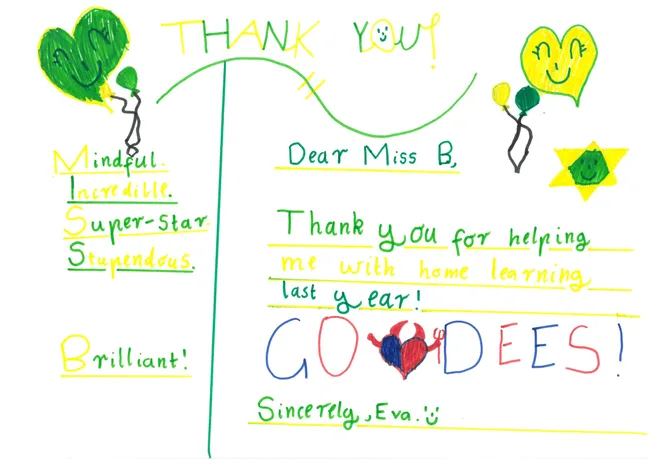 THANK YOU!
Mindful.
Incredible.
Super-Star
Stupendous.
Brilliant!
Dear Miss B,
Thank you for helping
me with home learning
last year!
GO DEES!
Sincerely, Eva.